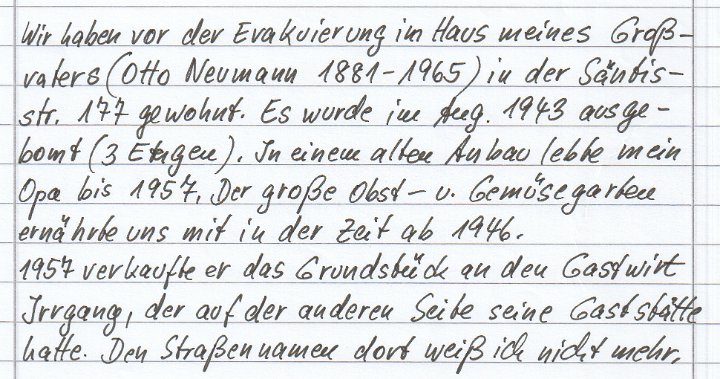 Wir haben vor der Evakuierung im Haus meines Groß-
vaters (Otto Neumann 1881-1965) in der Säntis-
str. 177 gewohnt. Es wurde im Aug. 1943 ausge-
bomt (3 Etagen). In einem alten Anbau lebte mein
Opa bis 1957. Der große Obst- u. Gemüsegarten
ernährte uns mit in der Zeit ab 1946.
1957 verkaufte er das Grundstück an den Gastwirt
Irrgang, der auf der anderen Seite seine Gaststätte
hatte. Den Straßennamen dort weiß ich nicht mehr.